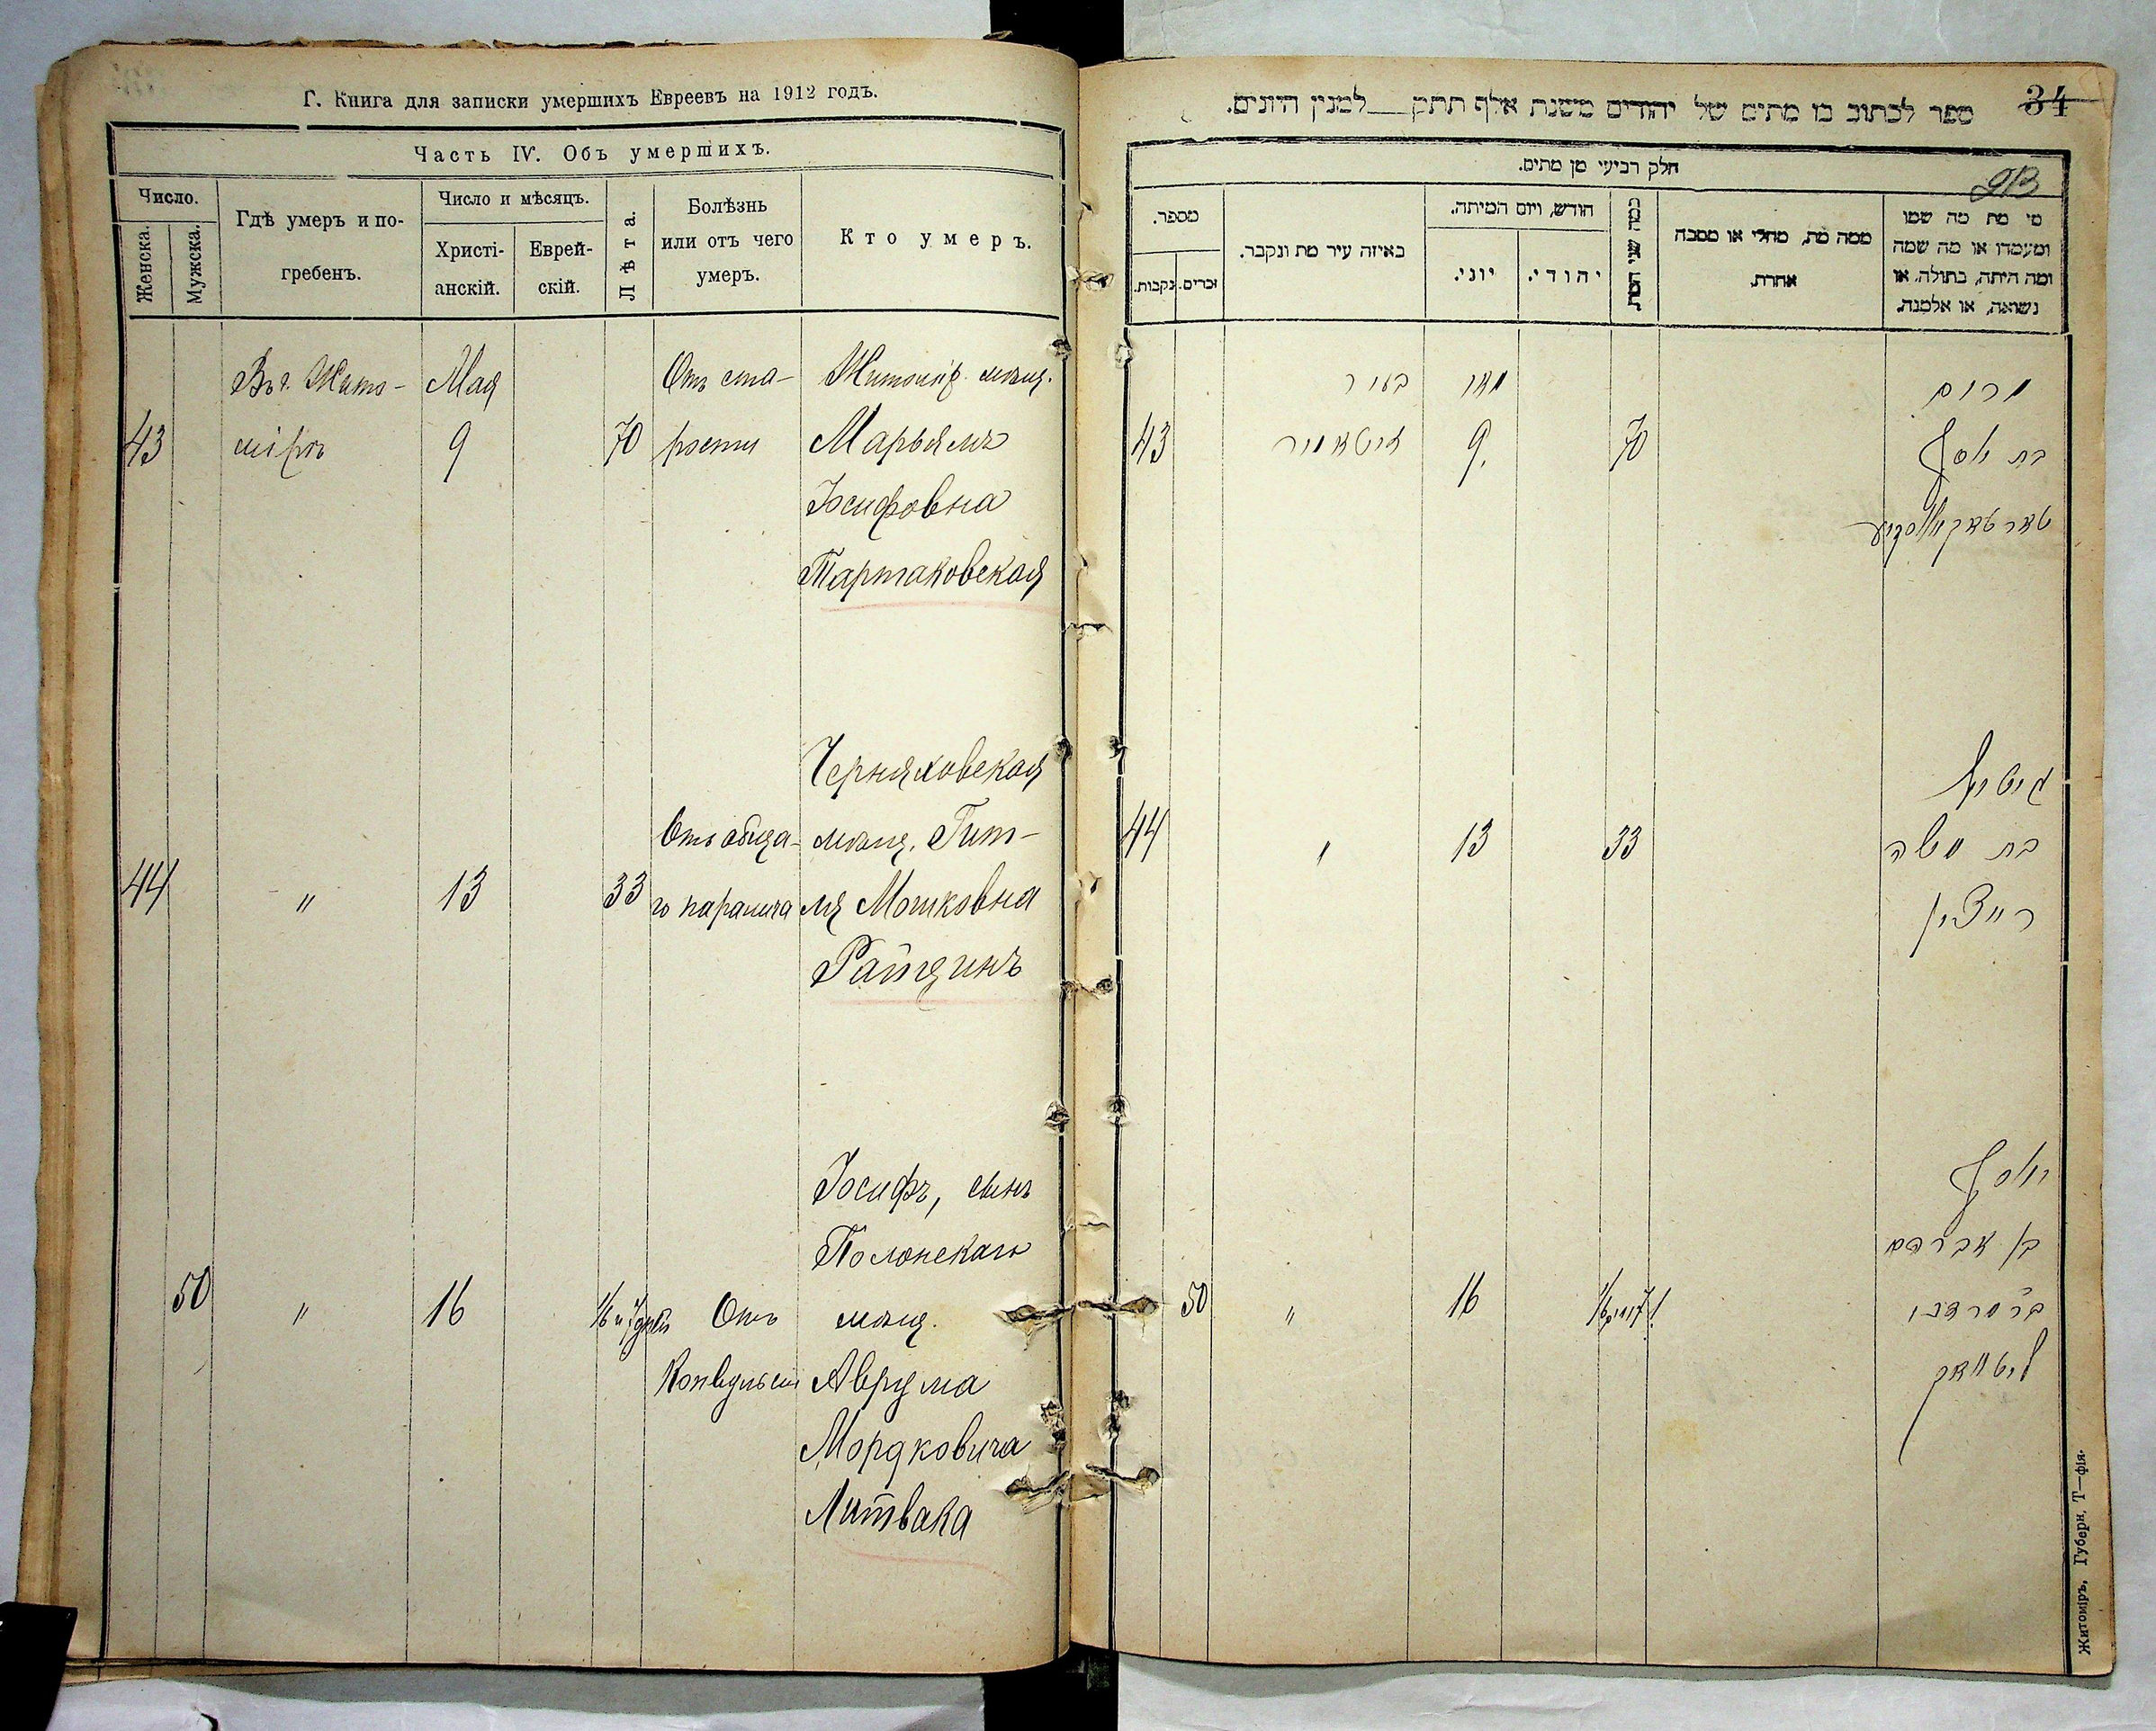 Г. Книга для записки умершихъ Евреевъ на 1912 годъ.
Часть IV. Объ умершихъ.
Число.
Женска.
Мужска.
Гдѣ умеръ и по-
гребенъ.
Число и мѣсяцъ.
Христі-
анскій.
Еврей-
скій.
Лѣта.
Болѣзнь
или отъ чего
умеръ.
Кто умеръ.
Въ г. Жито- Мая Отъ ста- Житомір. мѣщ.
43 мірѣ 9 70 рости Марьямъ
Іосифовна
Тартаковская
Черняховская
Отъ обща- мѣщ. Гит-
44 " 13 33 го паралича ля Мошковна
Райцинъ
Іосифъ, сынъ
Полонскаго
50 " 16 1/6 и 7 дней Отъ мѣщ.
Конвульсіи Аврума
Мордковича
Литвака
34
ספר לכתוב בו מתים של יהודים משנת אלף תתק__למנין היונים.
213
חלק רביעי מן מתים.
מספר.
נקבות.
זכרים.
באיזה עיר מת ונקבר.
חודש, ויום המיתה.
יוני.
יהודי.
כמה שני המת
ממה מת, מחלי או מסבה
אחרת.
מי מת מה שמו
ומעמדו או מה שמה
ומה היתה, בתולה, או
נשואה, או אלמנה.
בעיר מאי מרים
43 זיטאמיר 9. 70 בת יוסף
טארטאקאווסקיע
גיטיל
44 " 13 33 בת משה
רייצין
יוסף
בן אברהם
50 " 16 ב"ר מרדכי
ליטוואק
Житоміръ, Губерн. Т—фія.